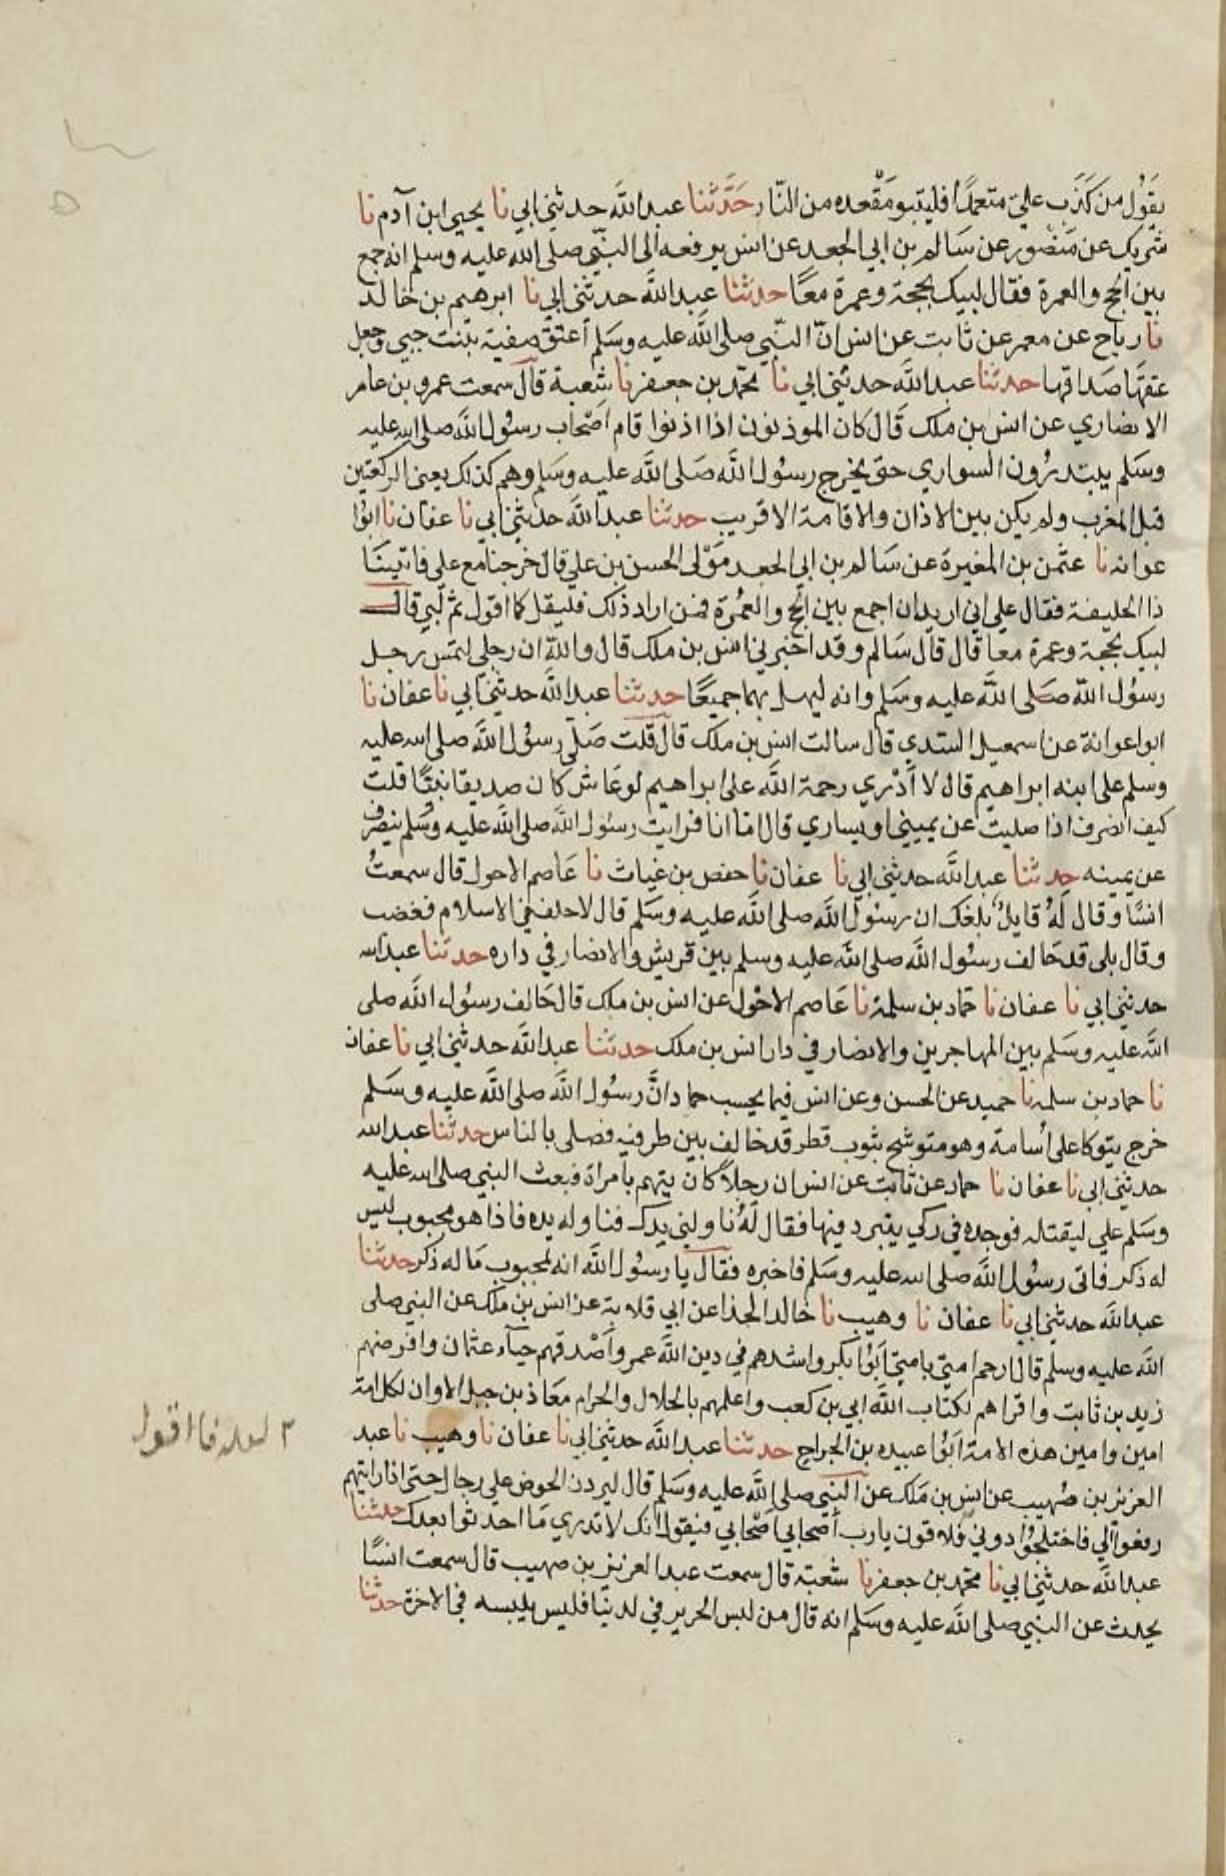 يَقُول من كَذَب عليّ متعمدًا فليتبو مَقْعده من النّار حَدَّثنا عبدالله حدثني ابي نا يحيى ابن آدم نا
شريك عن مَنصُور عن سَالم بن ابي الجعد عن انس يرفعه الى النبّي صلى الله عليه وسلم انه جمع
بين الحج والعمرة فقال لبيك بحجة وعمرة معًا حدثنا عبدالله حدثني ابي نا ابرهيم بن خالد
نا رباح عن معمر عن ثابت عن انس انّ النبّي صلى الله عليه وسَلم أعتق صفية بنت حيي وجعل
عتقها صَداقها حدثنا عبدالله حدثني ابي نا محمد بن جعفر نا شعبة قال سمعت عمرو بن عامر
الانصاري عن انس بن ملك قَال كان الموذنون اذا اذنوا قام اصْحاب رسوُل الله صلى الله عليه
وسَلم يبتدرُون السواري حتى يخرج رسوُل الله صَلى الله عليه وسَلم وهم كذلك يعنى الركعتين
قبل المغرب ولم يكن بين الاذان والاقامة الا قريب حدثنا عبدالله حدثني ابي نا عفان نا ابوُا
عوانه نا عثمن بن المغيرة عن سَالم بن ابي الجعد مَوْلى الحسن بن علي قال خرجنا مع علي فاتينَا
ذا الحليفة فقال علي اني اريد ان اجمع بين الحج والعمُرة فمن اراد ذلك فليقل كما اقول ثم لبّي قال
لبيك بحجة وعمرة معا قال قال سَالم وقد اخبرني انس بن ملك قال والله ان رجلي لتمس رجل
رسوُل الله صَلى الله عليه وسَلم وانه ليهل بهما جميعًا حدثنا عبدالله حدثني ابي نا عفان نا
ابوا عوانة عن اسمعيل السدي قال سالت انس بن ملك قال قلت صَلّى رسوُل الله صلى الله عليه
وسلم على ابنه ابراهيم قال لا أدْري رحمة الله على ابراهيم لو عَاش كان صديقا نبيًّا قلت
كيف انصرف اذا صليت عن يميني او يساري قال امّا انا فرايت رسوُل الله صلى الله عليه وسَلم ينصرف
عن يمينه حدثنا عبدالله حدثني ابي نا عفان نا حفص بن غياث نا عَاصم الاحول قال سمعتُ
انسًا وقال لَهُ قايلٌ بلغك ان رسوُل الله صلى الله عليه وسَلم قال لا حلف في الاسلام فغضب
وقال بلى قد حَالف رسوُل الله صلى الله عليه وسلم بين قريش والانصار في داره حدثنا عبدالله
حدثني ابي نا عفان نا حماد بن سلمة نا عَاصم الاحْول عن انس بن ملك قال حَالف رسوُل الله صلى
الله عليه وسَلم بين المهاجرين والانصار في دار انس بن ملك حدثنا عبدالله حدثني ابي نا عفان
نا حماد بن سلمة نا حميد عن الحسن وعن انس فيما يحسب حماد انَّ رسوُل الله صلى الله عليه وسَلم
خرج يتوكا على أسامة وهو متوشح بثوب قطر قد خالف بين طرفيه فصلى بالناس حدثنا عبدالله
حدثني ابي نا عفان نا حماد عن ثابت عن انس ان رجلاً كان يتهم بامراة فبعث النبي صلى الله عليه
وسَلم علي ليقتله فوجده في ركي يتبرد فيها فقال لَهُ ناولني يدك فناوله يده فاذا هو مجبوب ليس
له ذكر فاتى رسوُل الله صلى الله عليه وسَلم فاخبره فقال يا رسوُل الله انه لمجبوب مَا له ذكر حدثنا
عبدالله حدثني ابي نا عفان نا وهيب نا خالد الحذا عن ابي قلابة عن انس بن ملك عن النبي صلى
الله عليه وسلم قال ارحم امتي بامتي ابَوُا بكر واشدهم في دين الله عمر واَصْدقهم حياء عثمان وافرضهم
زيد بن ثابت واقراهم لكتاب الله ابي بن كعب واعلمهم بالحلال والحرام معَاذ بن جبل الا وان لكل امة
امين وامين هذه الامة ابَوُا عبيده بن الجراح حدثنا عبدالله حدثني ابي نا عفان نا وهيب نا عبد
العزيز بن صُهيب عن انس بن ملك عن النبّي صلى الله عليه وسَلم قال ليردن الحوض علي رجال حتى اذا رايتهم
رفعوا الي فاختلجُوُا دوني فلاقولن يارب أصحابي أصْحابي فيقول انك لا تدري مَا احدثوا بعدك حدثنا
عبدالله حدثني ابي نا محمد بن جعفر نا شعبة قال سمعت عبد العزيز بن صهيب قال سمعت انسًا
يحدث عن النبي صلى الله عليه وسَلم انه قال من لبس الحرير في لدنيا فليس يلبسه في الاخرة حدثنا
فا اقول